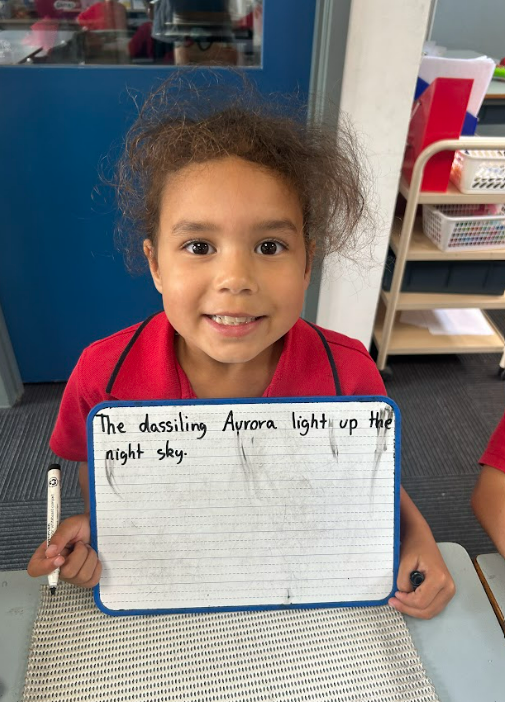 The dassiling Aurora light up the
night sky.